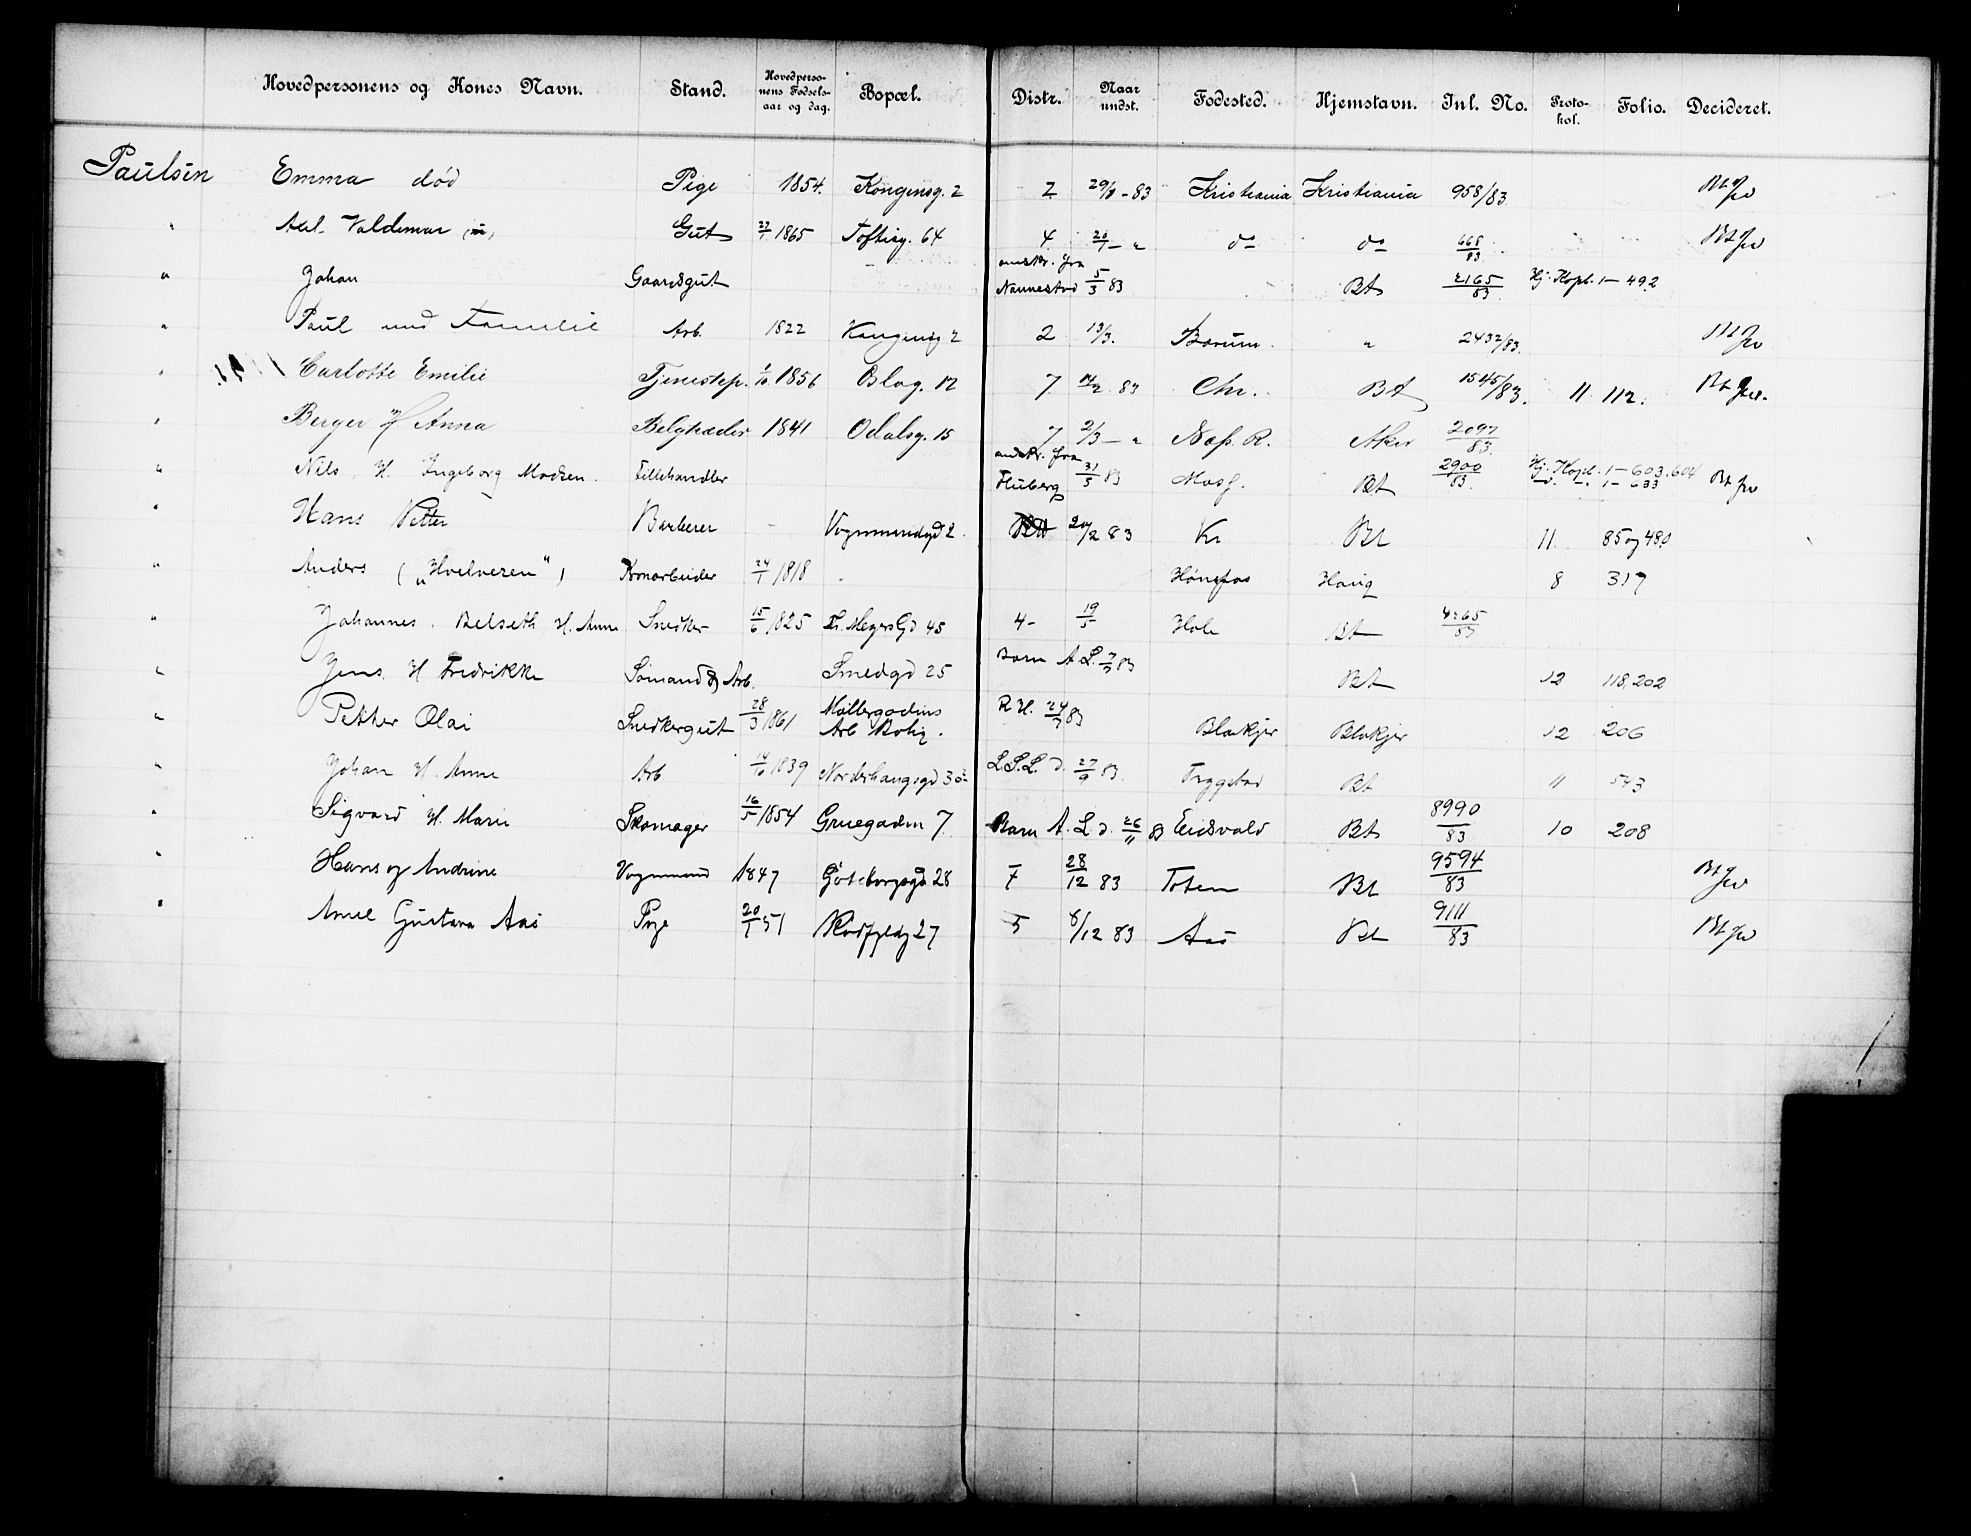 Hovedpersonens og Kones Navn. Stand. Hovedpersonens Fødselsaar og dag. Bopæl. Distr. Naar undst. Fødested. Hjemstavn. Inl. No. Protokol. Folio. Decideret.
Paulsen Emma død Pige 1854. Kongensg. 2 2 -83 Kristiania Kristiania 958/83 Bt
" Axel Valdemar Gut 1865 Toftesg. 64 4 20/1 - " do do 668/83 Bt
" Johan Gaardsgut anskr. fra Nannestad 5/3 83 Bt 2165/83 Hj. Kopb. 1 - 492
" Paul med Familie Arb. 1822 Kongensg 2 2 13/3. Bærum " 2432/83. Bt
" Carlotte Emilie Tjenestep. 1856 Oslog. 12 7 83 Chr. Bt 1545/83. 11 112. Bt
" Berger H Anna 1841 Odalsg. 15 7 2/3 - " Næs. R. Aker 2097/83.
" Nils, H. Ingeborg Madsen. Fillehandler andr. fra Fluberg 31/3 83 Bt 2900/83 Hj. Kopb. 1 - 603, 604 1 - 633 Bt
" Hans Petter Barberer Vognmandsgd 2. 20/2 83 Kr Bt 11. 85 og 480
" Anders ( „Hvelveren" ) 24/1 1818 Hønefos Haug 8 317
" Johannes. Belseth H. Anne Snedker 15/6 1825 Meyers Gd 45 4 - 19/5 Hole Bt 4265/83
" Jens. H Fredrikke Sømand & Arb. Smedgd 25 Barn A. L. 83 Bt 12 118, 202
" Petter Olai Snedkergut 28/3 1861 Møllergadens Arb Bolig. R. H. 83 Blakjer Blakjer 12 206
" Johan H. Anne Arb 1839 Nordahl L. S. L. d. 27/9 83. Trygstad Bt 11 543
" Sigvard H. Marie Skomager 16/5 1854 Gruegaden 7 Barn A. L. d. 26/11 83 Eidsvold Bt 8990/83 10 208
" Hans og Andrine Vognmand 1847 Göteborgsgd 28 7 28/12 83 Toten Bt 9594/83 Bt
" Gustava Aas Pige 20/1 51 27 5 6/12 83 Aas Bt 9111/83 Bt